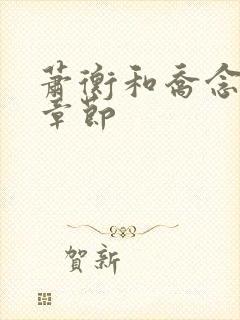 萧衡和乔念
章节
賀新